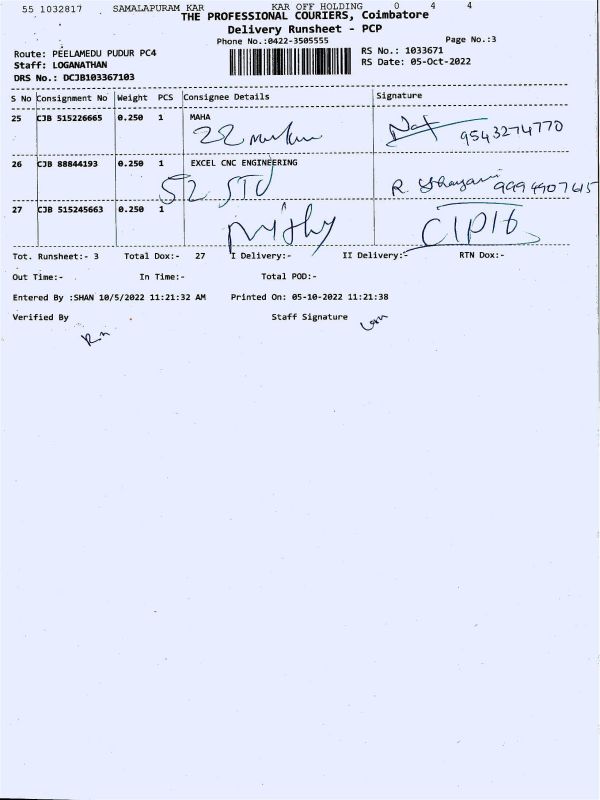 55 1032817 SAMALAPURAM KAR KAR OFF HOLDING 0 4 4
THE PROFESSIONAL COURIERS, Coimbatore
Delivery Runsheet - PCP
Phone No.:0422-3505555 Page No.:3
Route: PEELAMEDU PUDUR PC4 RS No.: 1033671
Staff: LOGANATHAN RS Date: 05-Oct-2022
DRS No.: DCJB103367103
S No Consignment No Weight PCS Consignee Details Signature
25 CJB 515226665 0.250 1 MAHA
22 9543274770
26 CJB 88844193 0.250 1 EXCEL CNC ENGINEERING
52 STD R. 9994907645
27 CJB 515245663 0.250 1
Tot. Runsheet:- 3 Total Dox:- 27 I Delivery:- II Delivery:- RTN Dox:-
Out Time:- In Time:- Total POD:-
Entered By :SHAN 10/5/2022 11:21:32 AM Printed On: 05-10-2022 11:21:38
Verified By Staff Signature